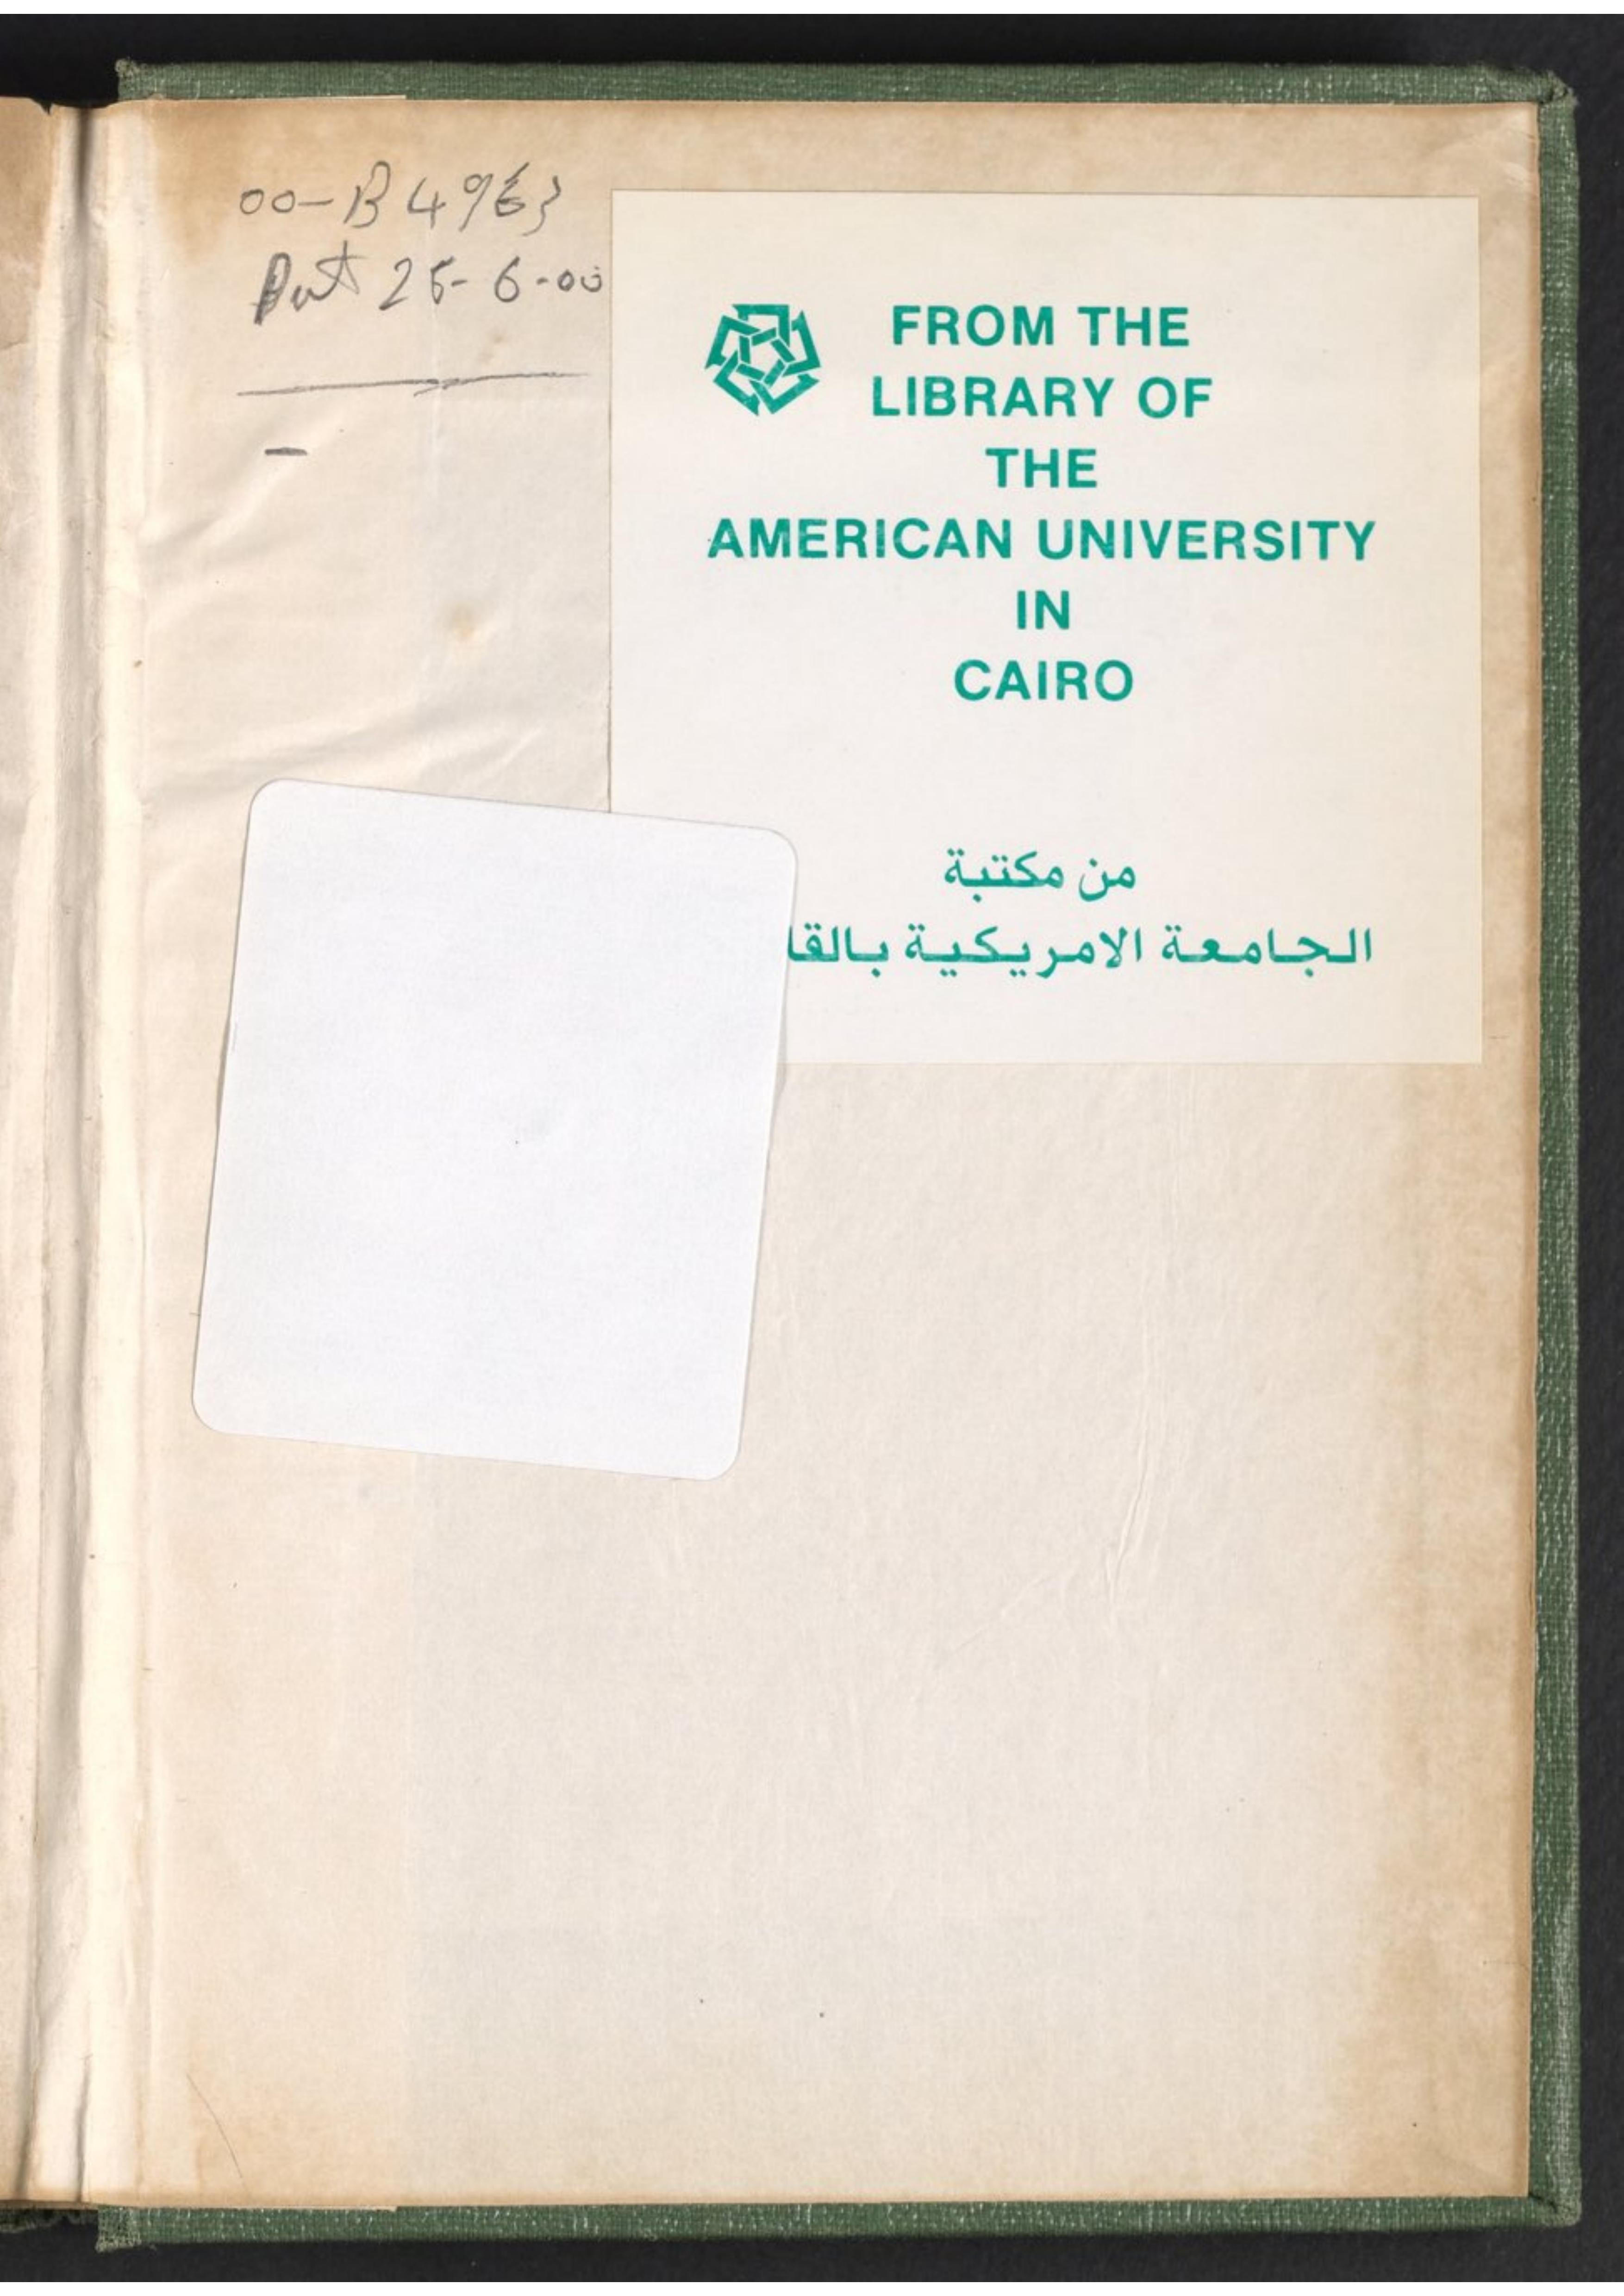 00-B 4963
25-6-00
FROM THE
LIBRARY OF
THE
AMERICAN UNIVERSITY
IN
CAIRO
من مكتبة
الجامعة الامريكية بالقا